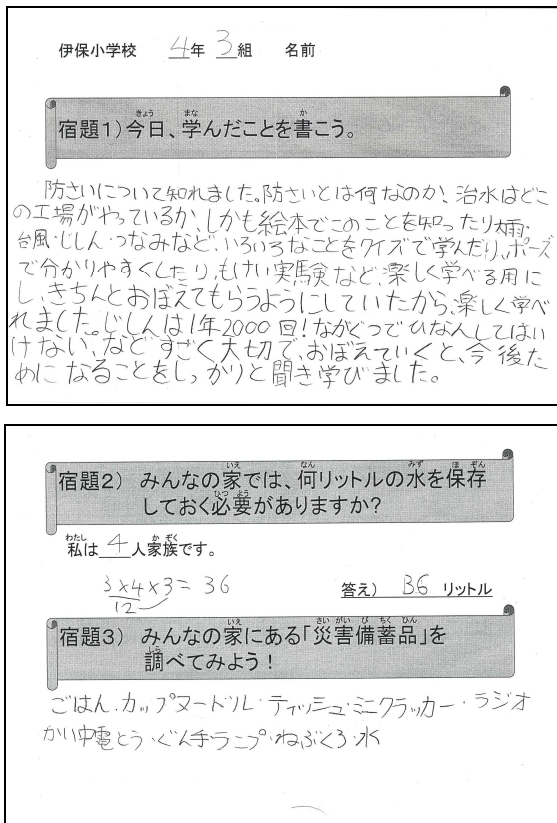 伊保小学校 4年 3組 名前
宿題1)今日、学んだことを書こう。
防さいについて知れました。防さいとは何なのか、治水はどこ
の工場がやっているか、しかも絵本でこのことを知ったり大雨・
台風・じしん・つなみなど、いろいろなことをクイズで学んだり、ポーズ
で分かりやすくしたり、もけい実験など、楽しく学べる用に
し、きちんとおぼえてもらうようにしていたから、楽しく学べ
れました。じしんは1年2000回!ながぐつでひなんしてはい
けない、などすごく大切で、おぼえていくと、今後た
めになることをしっかりと聞き学びました。
宿題2) みんなの家では、何リットルの水を保存
しておく必要がありますか?
私は 4 人家族です。
3×4×3=36
12
答え) 36 リットル
宿題3) みんなの家にある「災害備蓄品」を
調べてみよう!
ごはん・カップヌードル・ティッシュ・ミニクラッカー・ラジオ
かい中電とう・ぐん手・ランプ・ねぶくろ・水